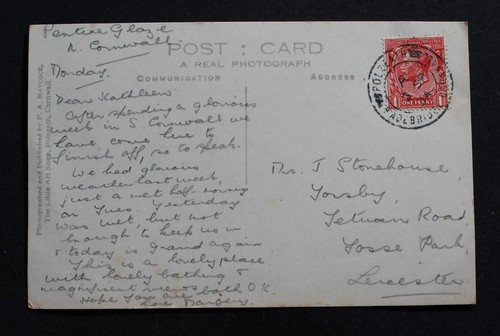 Pentire Glaze
N. Cornwall.
Monday.
POST CARD
A REAL PHOTOGRAPH
COMMUNICATION
ADDRESS
Dear Kathleen
After spending a glorious
week in S Cornwall we
have come here to
finish off, so to speak.
We had glorious
weather last week,
just a wet half morning
on Tues. Yesterday
was wet, but not
enough to keep us in
& today is grand again
This is a lovely place
with lovely bathing &
magnificent views
Hope you are both O.K.
Love
Mrs. J. Stonehouse
Torsby,
Tetuan Road,
Fosse Park,
Leicester
Photographed and Published by F. A.
The Little Art Shop, Polzeath, Cornwall.
POLZEATH
WADEBRIDGE
ONE PENNY
1